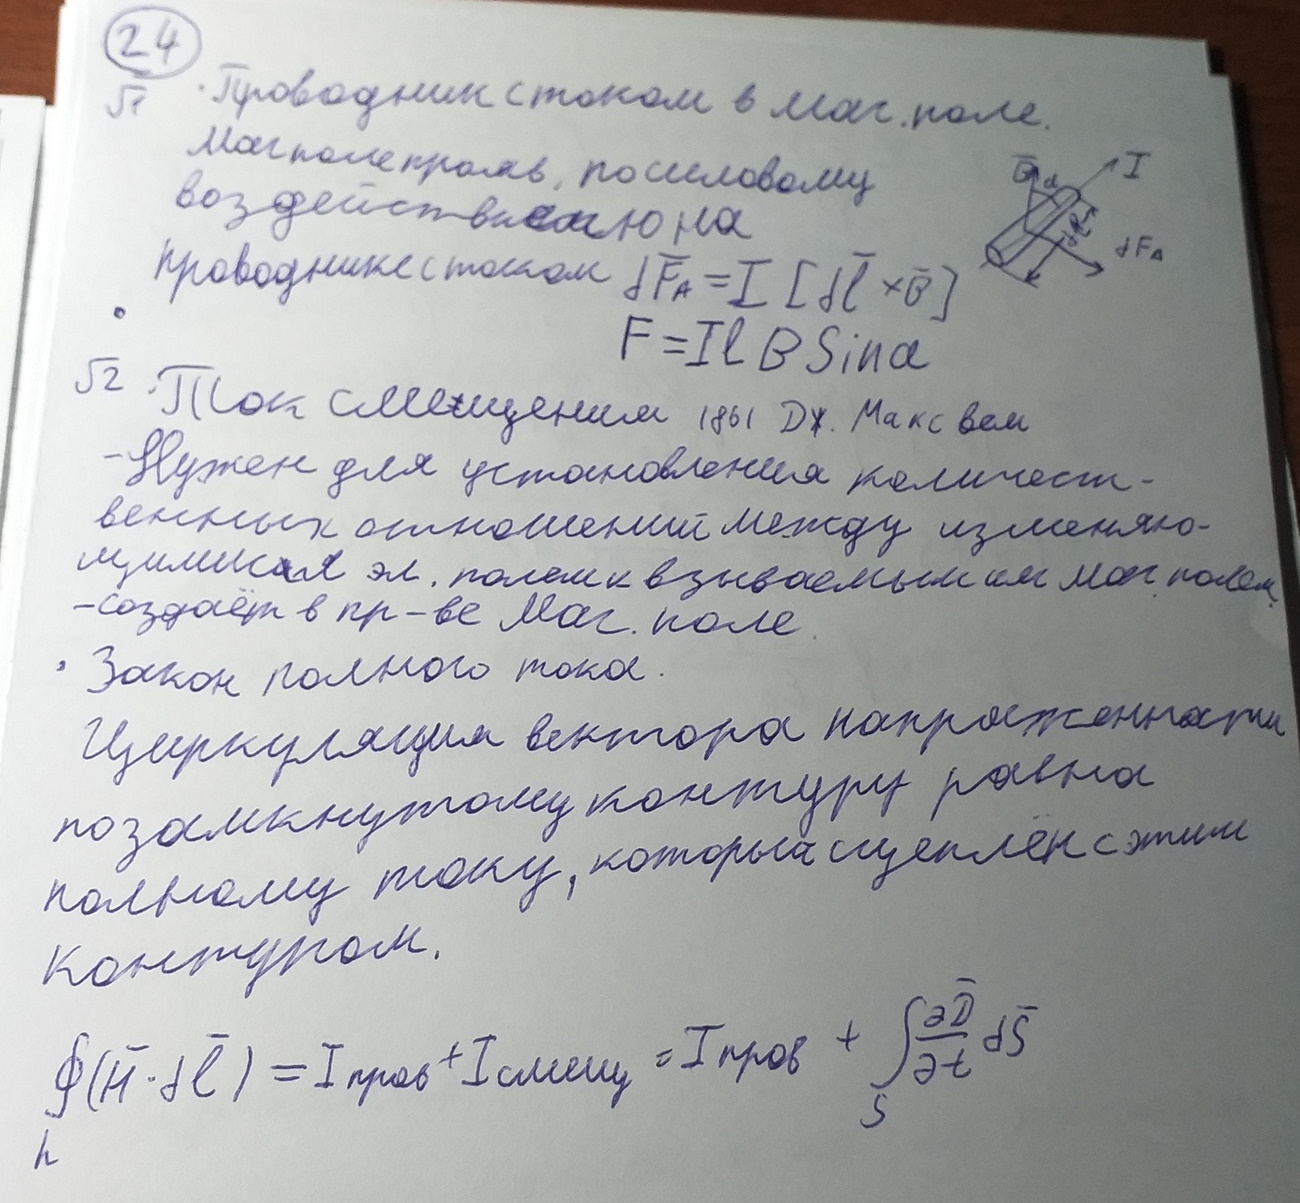 24
√1 · Проводник с током в маг. поле.
Маг поле прояв. по силовому
воздействию на
проводнике с током dF̄A = I [dl̄ × B̄]
B̄ α I dl̄ dFA
F = I l B Sin α
√2 · Ток смещения 1861 Дж. Максвелл
- Нужен для установления количест-
венных отношений между изменяю-
щимися эл. полем и взываемым им маг. полем
- создаёт в пр-ве маг. поле.
· Закон полного тока.
Циркуляция вектора напряженности
по замкнутому контуру равна
полному току, который сцеплён с этим
контуром.
∮(H̄ · dl̄) = I пров + I смещ = I пров + ∫ ∂D̄/∂t dS̄
h S